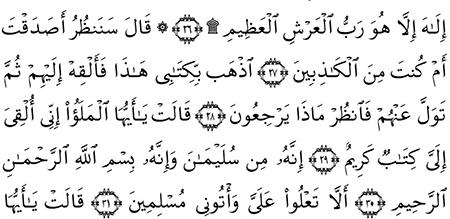 إِلَـٰهَ إِلَّا هُوَ رَبُّ ٱلْعَرْشِ ٱلْعَظِيمِ ۩ ﴿٢٦﴾ ۞ قَالَ سَنَنظُرُ أَصَدَقْتَ
أَمْ كُنتَ مِنَ ٱلْكَـٰذِبِينَ ﴿٢٧﴾ ٱذْهَب بِّكِتَـٰبِى هَـٰذَا فَأَلْقِهْ إِلَيْهِمْ ثُمَّ
تَوَلَّ عَنْهُمْ فَٱنظُرْ مَاذَا يَرْجِعُونَ ﴿٢٨﴾ قَالَتْ يَـٰٓأَيُّهَا ٱلْمَلَؤُا۟ إِنِّىٓ أُلْقِىَ
إِلَىَّ كِتَـٰبٌ كَرِيمٌ ﴿٢٩﴾ إِنَّهُۥ مِن سُلَيْمَـٰنَ وَإِنَّهُۥ بِسْمِ ٱللَّهِ ٱلرَّحْمَـٰنِ
ٱلرَّحِيمِ ﴿٣٠﴾ أَلَّا تَعْلُوا۟ عَلَىَّ وَأْتُونِى مُسْلِمِينَ ﴿٣١﴾ قَالَتْ يَـٰٓأَيُّهَا